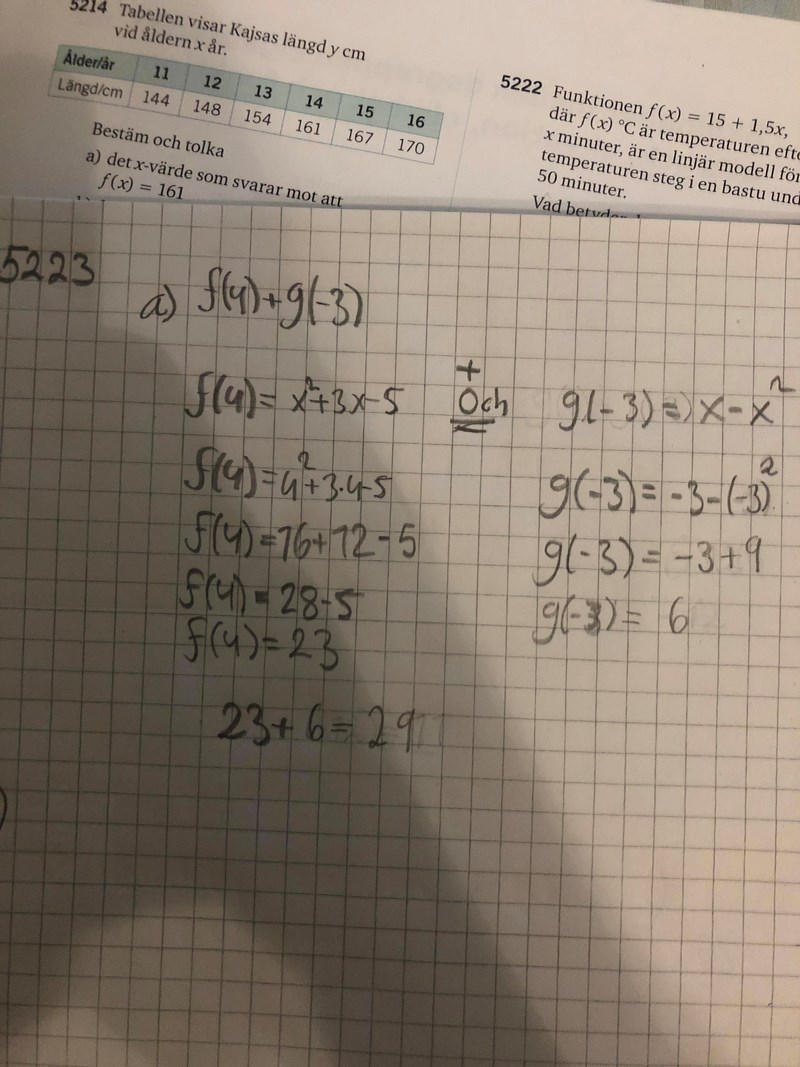 5214 Tabellen visar Kajsas längd y cm
vid åldern x år.
Ålder/år 11 12 13 14 15 16
Längd/cm 144 148 154 161 167 170
Bestäm och tolka
a) det x-värde som svarar mot att
f(x) = 161
5222 Funktionen f(x) = 15 + 1,5x,
där f(x) °C är temperaturen efte
x minuter, är en linjär modell för
temperaturen steg i en bastu und
50 minuter.
Vad betyder
5223
a) f(4)+g(-3)
f(4)= x²+3x-5
+
Och
g(-3)=) x-x²
f(4)=4²+3·4-5
g(-3)= -3-(-3)²
f(4)=16+12-5
g(-3)= -3+9
f(4)=28-5
g(-3)= 6
f(4)=23
23+6=29